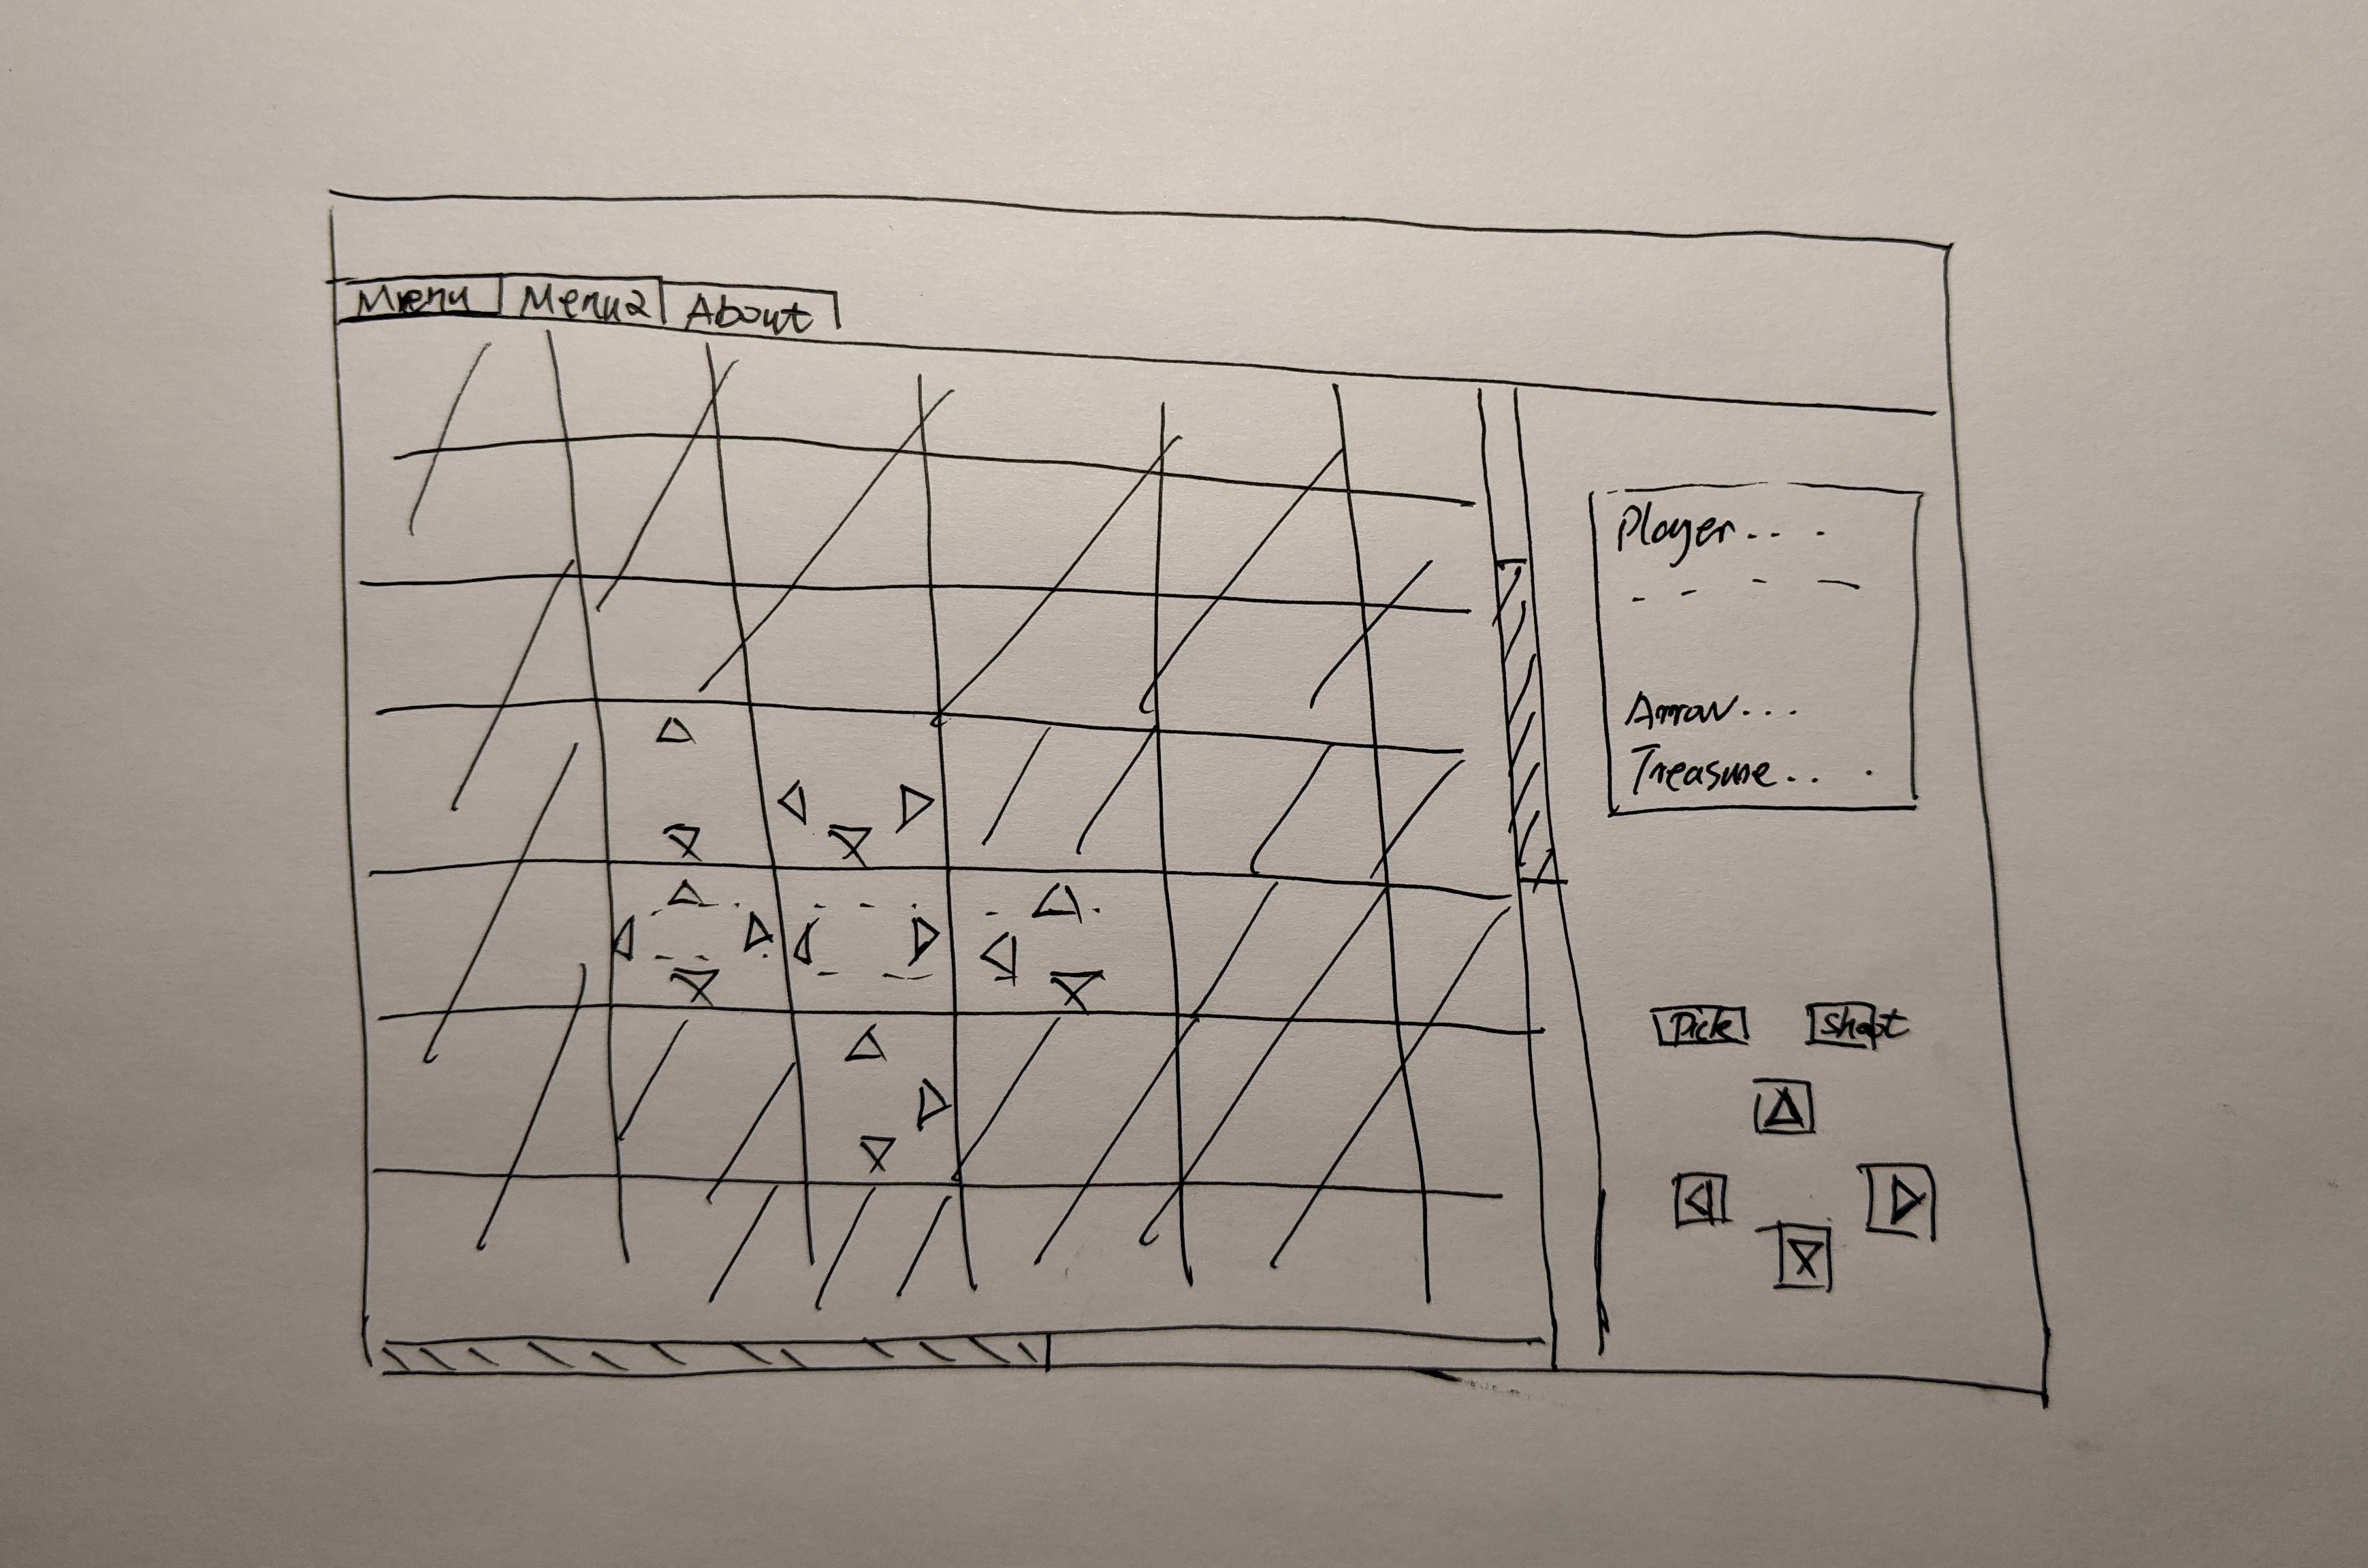 Menu Menu2 About
Player... .
Arrow...
Treasure.. .
Pick Shoot